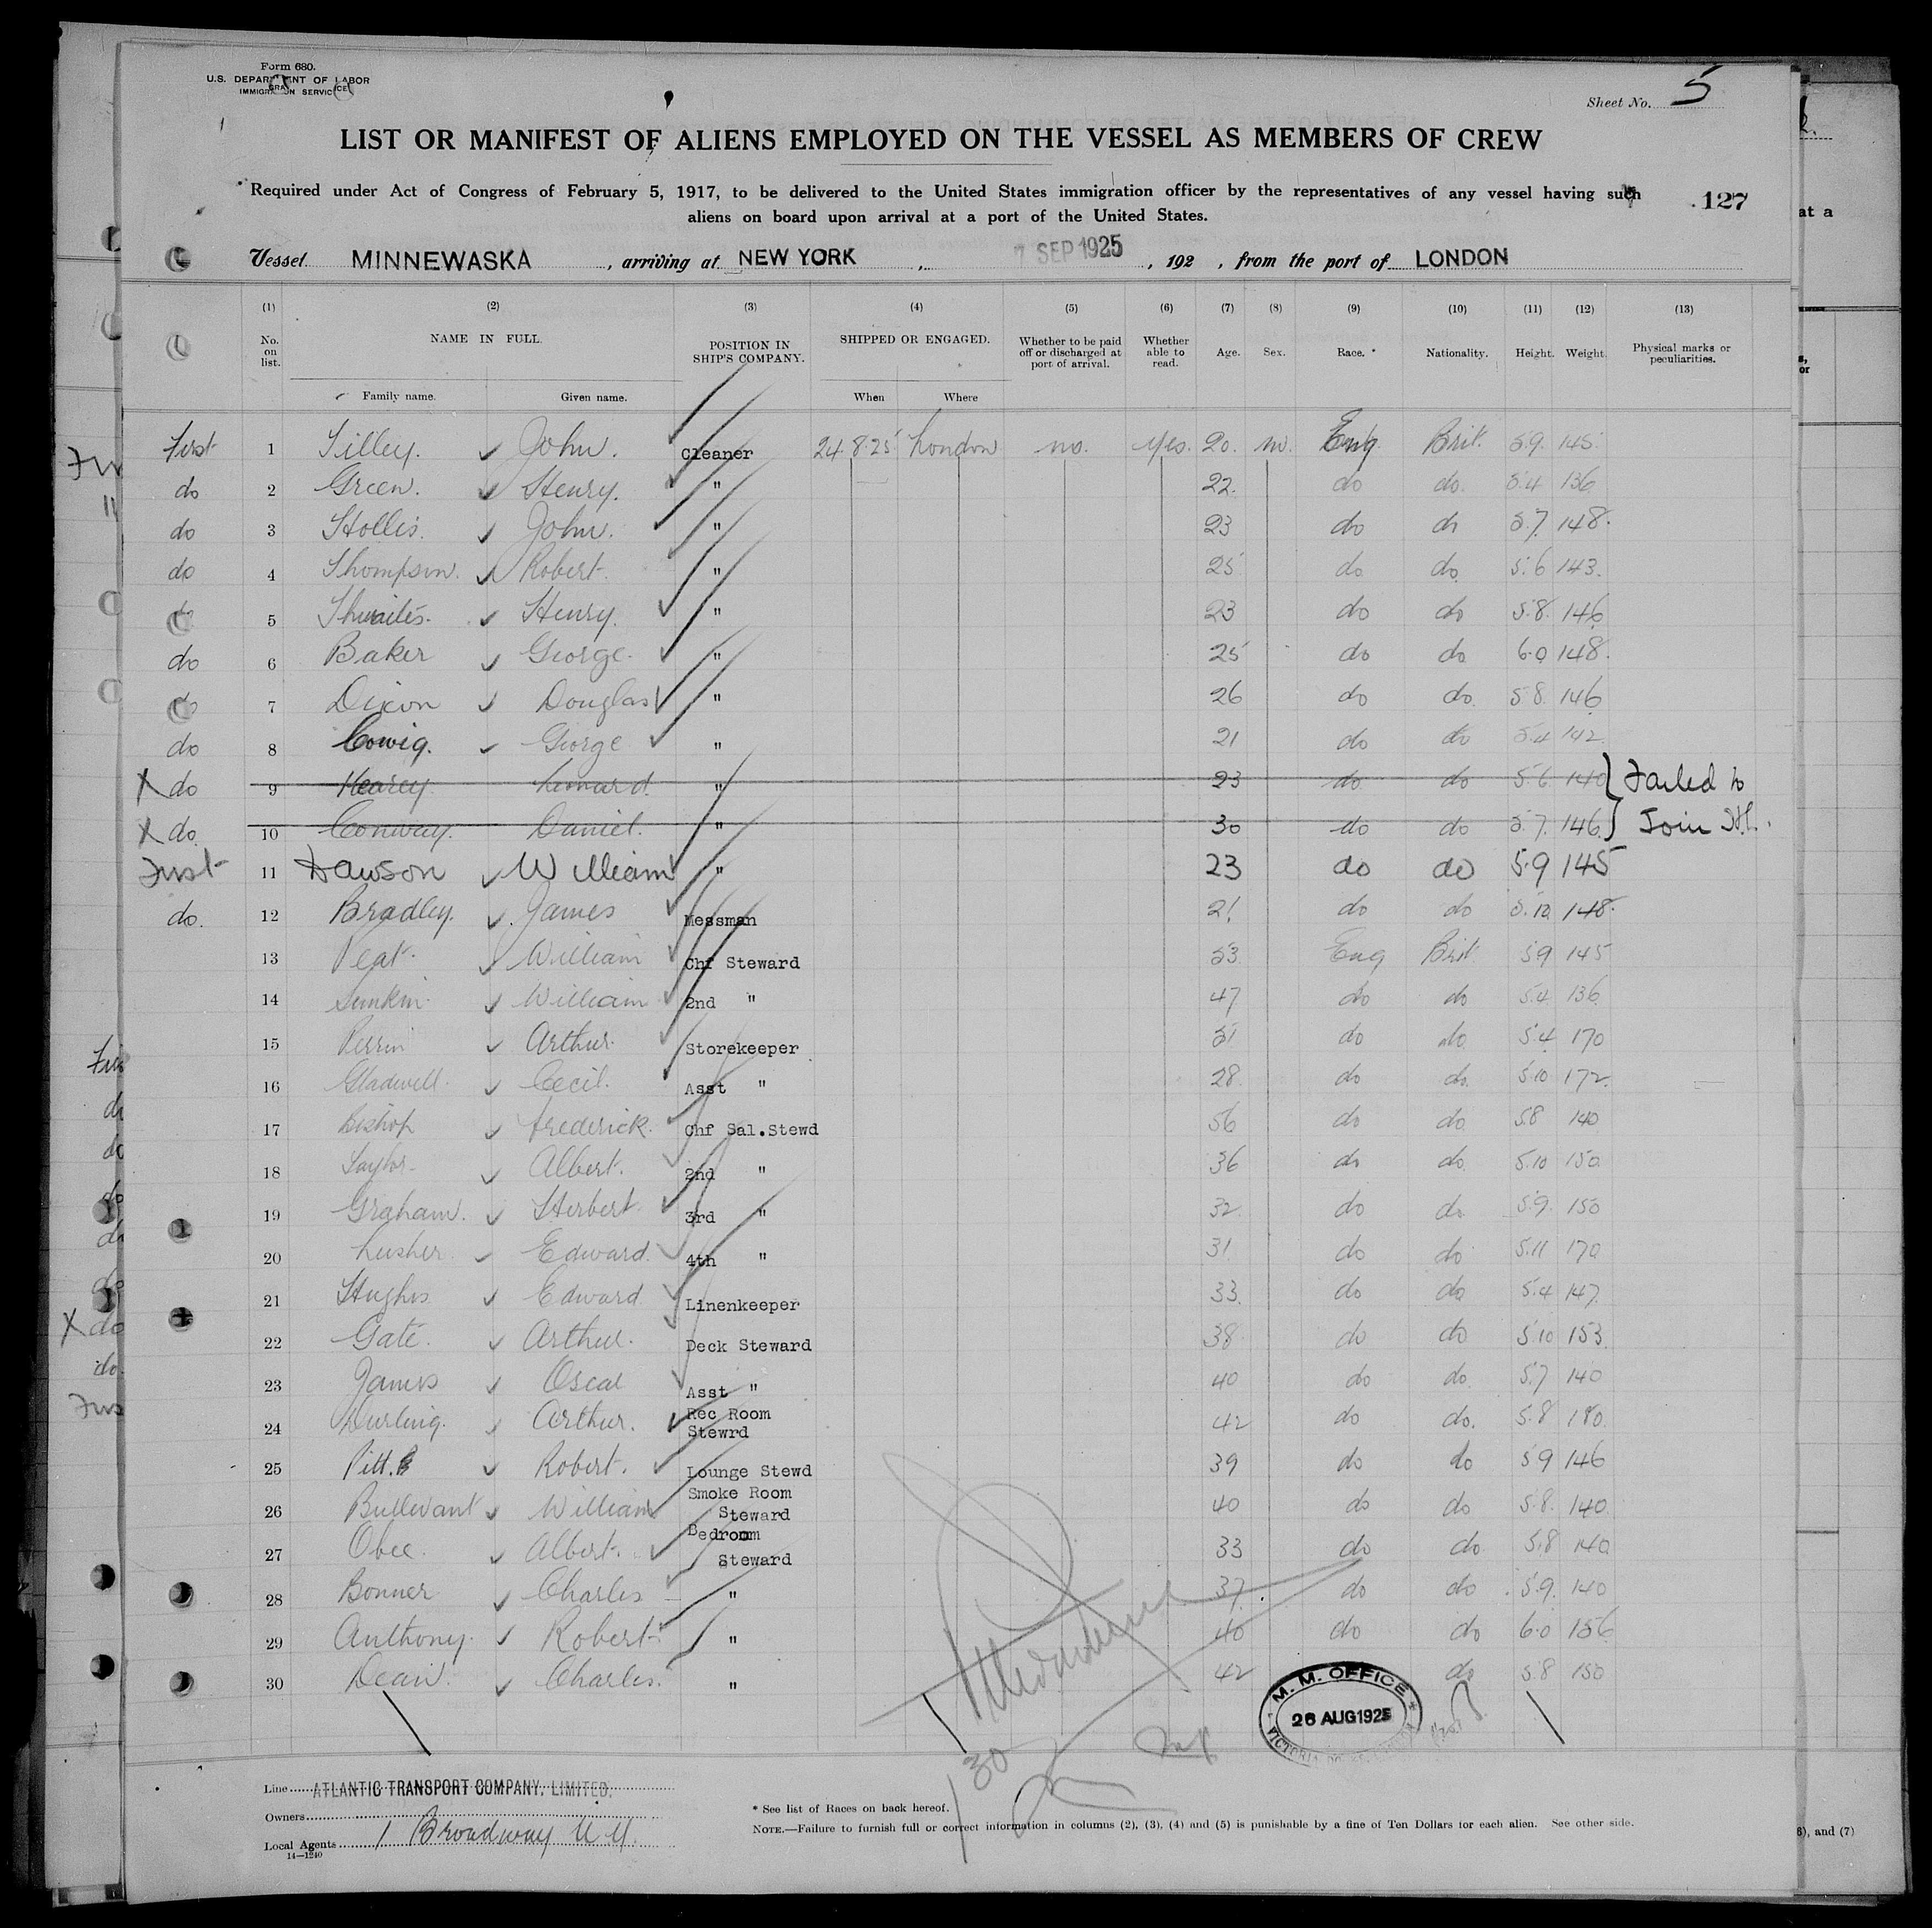 Form 680.
U.S. DEPARTMENT OF LABOR
IMMIGRATION SERVICE
Sheet No. 5
LIST OR MANIFEST OF ALIENS EMPLOYED ON THE VESSEL AS MEMBERS OF CREW
Required under Act of Congress of February 5, 1917, to be delivered to the United States immigration officer by the representatives of any vessel having such
aliens on board upon arrival at a port of the United States.
127
Vessel MINNEWASKA, arriving at NEW YORK, 7 SEP 1925, 192 , from the port of LONDON
(1) (2) (3) (4) (5) (6) (7) (8) (9) (10) (11) (12) (13)
No. on list. NAME IN FULL. POSITION IN SHIP'S COMPANY. SHIPPED OR ENGAGED. Whether to be paid off or discharged at port of arrival. Whether able to read. Age. Sex. Race. * Nationality. Height. Weight. Physical marks or peculiarities.
Family name. Given name. When Where
First 1 Tilley. John. Cleaner 24.8.25 London no. yes. 20. m. Eng Brit. 5.9. 145.
do 2 Green. Henry. " 22. do do. 5.4 136
do 3 Hollis. John. " 23 do do 5.7. 148.
do 4 Thompson. Robert. " 25 do do 5.6 143.
do 5 Thwaites. Henry. " 23 do do 5.8. 146
do 6 Baker George. " 25 do do 6.0 148.
do 7 Dixon Douglas " 26 do do. 5.8. 146
do 8 Cowig. George " 21 do do 5.4 142
X do 9 Hearey. Leonard. " 23 do do 5.6. 140 } Failed to
X do. 10 Conway. Daniel. " 30 do do 5.7. 146 } Join
First 11 Dawson William " 23 do do 5.9 145
do. 12 Bradley. James Messman 21 do do 5.10. 148.
13 Peat. William Chf Steward 53 Eng Brit 5.9 145
14 William 2nd " 47 do do 5.4 136
15 Perrin Arthur. Storekeeper 51 do do 5.4 170
16 Gladwell. Cecil. Asst " 28. do do. 5.10 172.
17 Bishop Frederick. Chf Sal.Stewd 56 do do 5.8 140
18 Taylor Albert. 2nd " 36 do do 5.10 150
19 Graham. Herbert. 3rd " 32. do do 5.9. 150
20 Lusher. Edward. 4th " 31. do do 5.11 170
21 Hughes Edward Linenkeeper 33. do do 5.4 147.
22 Gate. Arthur. Deck Steward 38. do do 5.10 153
23 James Oscar Asst " 40 do do 5.7 140
24 Durling. Arthur. Rec Room Stewrd 42 do do. 5.8 180.
25 Pitt. Robert. Lounge Stewd 39 do do 5.9 146
26 Bullevant William Smoke Room Steward 40 do do 5.8. 140.
27 Obee. Albert. Bedroom Steward 33 do do 5.8 140
28 Bonner Charles " 37. do do 5.9. 140
29 Anthony. Robert. " 40 do do 6.0 156
30 Dean. Charles. " 42 do 5.8 150
M. M. OFFICE
26 AUG 1925
VICTORIA
30
Line ATLANTIC TRANSPORT COMPANY, LIMITED.
Owners
Local Agents 1 Broadway N.Y.
14—1240
* See list of Races on back hereof.
NOTE.—Failure to furnish full or correct information in columns (2), (3), (4) and (5) is punishable by a fine of Ten Dollars for each alien. See other side.
at a
or
6), and (7)